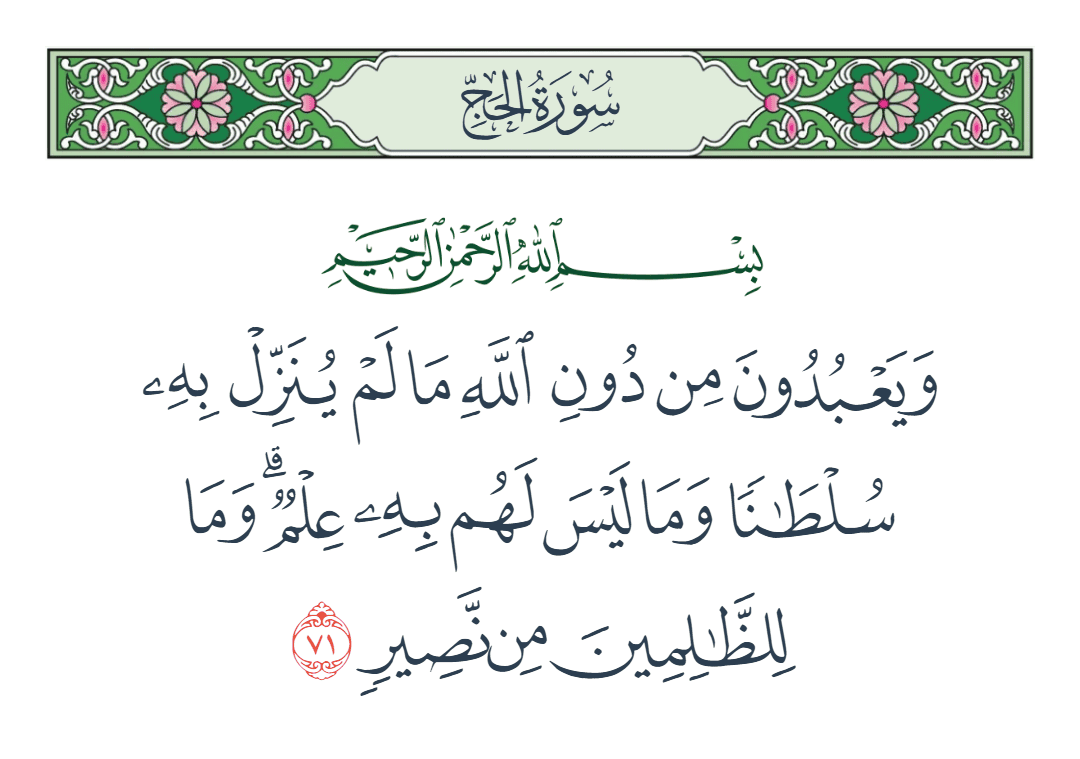 سُورَةُ الحَجِّ
بِسْمِ ٱللَّهِ ٱلرَّحْمَٰنِ ٱلرَّحِيمِ
وَيَعْبُدُونَ مِن دُونِ ٱللَّهِ مَا لَمْ يُنَزِّلْ بِهِۦ
سُلْطَٰنًا وَمَا لَيْسَ لَهُم بِهِۦ عِلْمٌ ۗ وَمَا
لِلظَّٰلِمِينَ مِن نَّصِيرٍ ٧١